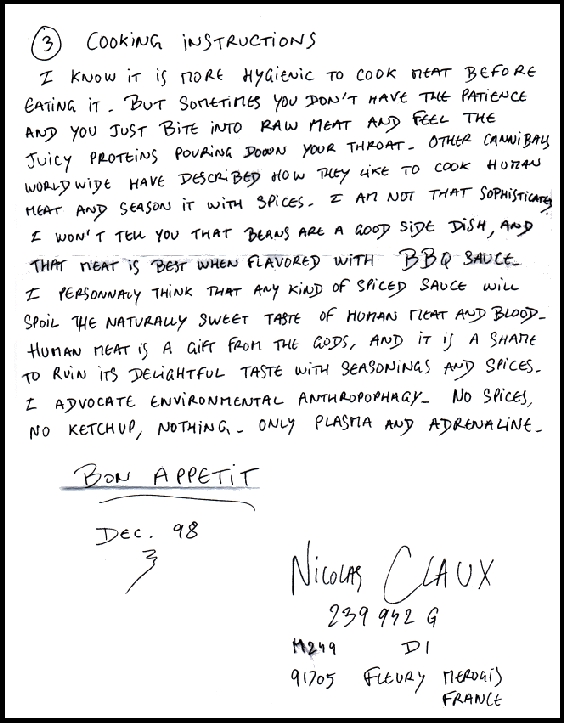 3 COOKING INSTRUCTIONS
I KNOW IT IS MORE HYGIENIC TO COOK MEAT BEFORE
EATING IT. BUT SOMETIMES YOU DON'T HAVE THE PATIENCE
AND YOU JUST BITE INTO RAW MEAT AND FEEL THE
JUICY PROTEINS POURING DOWN YOUR THROAT. OTHER CANNIBALS
WORLDWIDE HAVE DESCRIBED HOW THEY LIKE TO COOK HUMAN
MEAT AND SEASON IT WITH SPICES. I AM NOT THAT SOPHISTICATED
I WON'T TELL YOU THAT BEANS ARE A GOOD SIDE DISH, AND
THAT MEAT IS BEST WHEN FLAVORED WITH BBQ SAUCE.
I PERSONNALY THINK THAT ANY KIND OF SPICED SAUCE WILL
SPOIL THE NATURALLY SWEET TASTE OF HUMAN MEAT AND BLOOD.
HUMAN MEAT IS A GIFT FROM THE GODS, AND IT IS A SHAME
TO RUIN ITS DELIGHTFUL TASTE WITH SEASONINGS AND SPICES.
I ADVOCATE ENVIRONMENTAL ANTHROPOPHAGY. NO SPICES,
NO KETCHUP, NOTHING. ONLY PLASMA AND ADRENALINE.
BON APPETIT
DEC. 98
NICOLAS CLAUX
239 942 G
M249 D1
91705 FLEURY MEROGIS
FRANCE